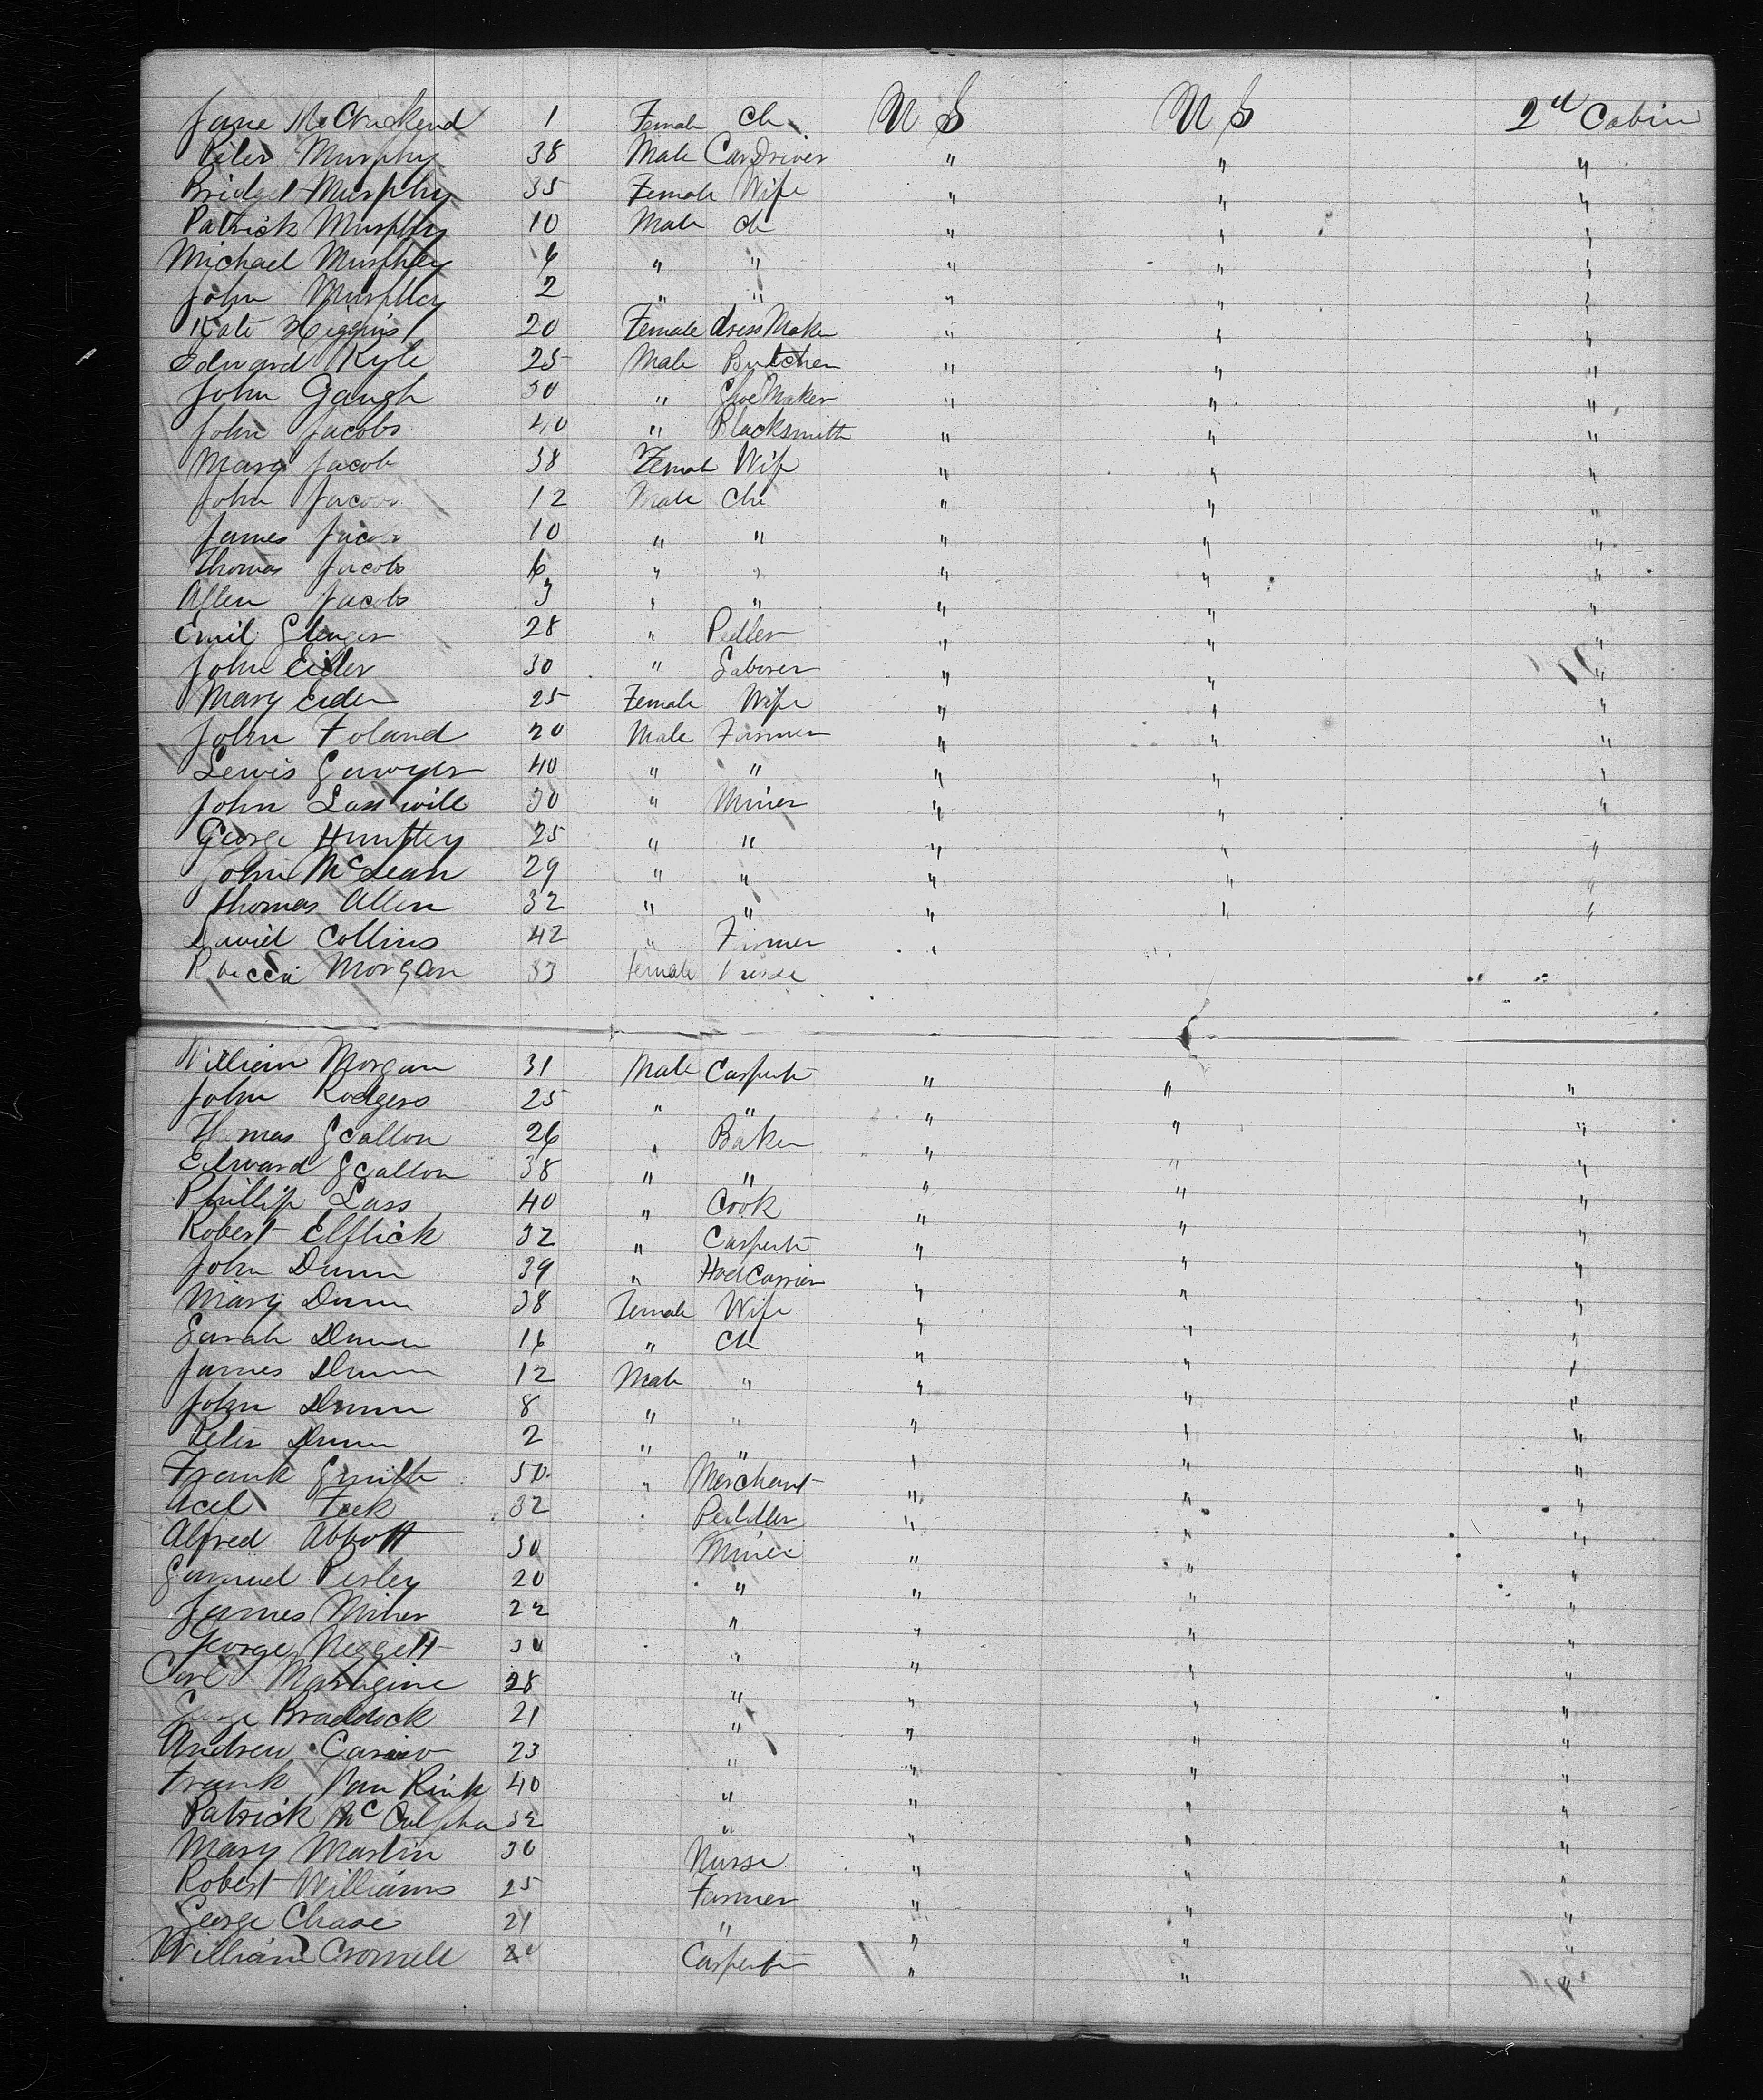 Jane McCrackend 1 Female Ch U S U S 2d Cabin
Peter Murphy 38 Male Car Driver " " "
Bridget Murphy 35 Female Wife " " "
Patrick Murphy 10 Male Ch " " "
Michael Murphy 6 " " " " "
John Murphy 2 " " " " "
Kate Higgins 20 Female dress Maker " " "
Edward Kyle 25 Male Butcher " " "
John Gaugh 30 " Shoe Maker " " "
John Jacobs 40 " Blacksmith " " "
Mary Jacob 38 Female Wife " " "
John Jacobs 12 Male Chi " " "
James Jacobs 10 " " " " "
Thomas Jacobs 6 " " " " "
Allen Jacobs 3 " " " " "
Emil 28 " Pedler " " "
John Eider 30 " Laborer " " "
Mary Eider 25 Female Wife " " "
John Foland 20 Male Farmer " " "
Lewis Sawyer 40 " " " " "
John Lasswill 30 " Miner " " "
George Humftey 25 " " " " "
John McLean 29 " " " " "
Thomas Allen 32 " " " " "
David Collins 42 " Farmer "
Rebecca Morgan 33 Female Nurse
William Morgan 31 Male Carpentr " " "
John Rodgers 25 " " " " "
Thomas Scallon 26 " Baker " " "
Edward Scallon 38 " " " " "
Phillip Lass 40 " Cook " " "
Robert Elflick 32 " Carpentr " " "
John Dunn 39 " Hod Carrier " " "
Mary Dunn 38 Female Wife " " "
Sarah Dunn 16 " Ch " " "
James Dunn 12 Male " " " "
John Dunn 8 " " " " "
Peter Dunn 2 " " " " "
Frank Smith 50 " Merchant " " "
Acel Feek 32 " Peddler " " "
Alfred Abbott 30 Miner " " "
Samuel Perley 20 " " " "
James Miner 22 " " " "
George Neggett 30 " " " "
Carl Maragine 28 " " " "
George Braddock 21 " " " "
Andrew 23 " " " "
Frank Van Rink 40 " " " "
Patrick Mc 32 " " " "
Mary Martin 30 Nurse " " "
Robert Williams 25 Farmer " " "
George Chase 21 " " " "
William Cromell 20 Carpentr " " "